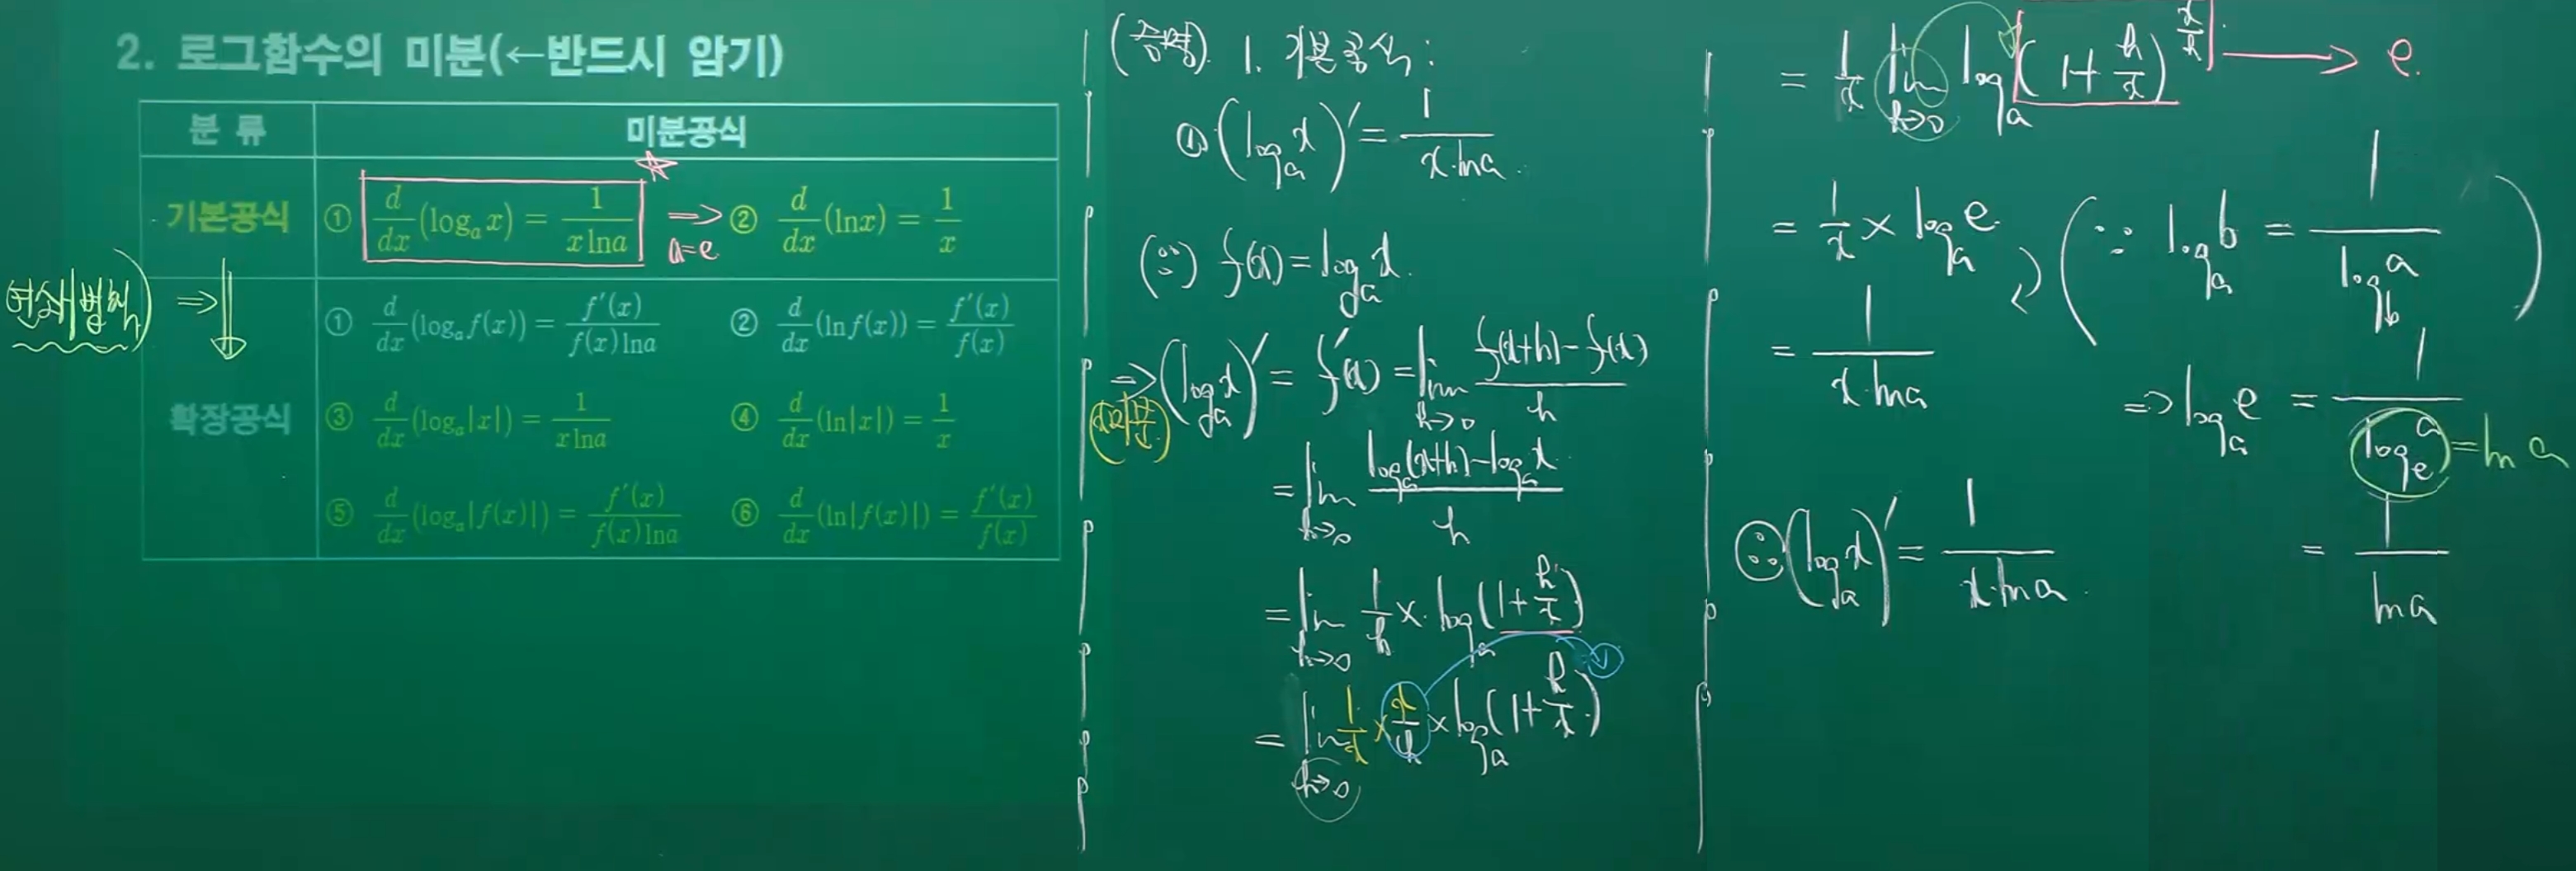 2. 로그함수의 미분(←반드시 암기)
분 류 미분공식
기본공식 ① d/dx (logₐ x) = 1/(x ln a) ☆ ⇒ a=e ② d/dx (ln x) = 1/x
연쇄법칙) ⇒ ↓
확장공식
① d/dx (logₐ f(x)) = f′(x)/(f(x) ln a) ② d/dx (ln f(x)) = f′(x)/f(x)
③ d/dx (logₐ |x|) = 1/(x ln a) ④ d/dx (ln |x|) = 1/x
⑤ d/dx (logₐ |f(x)|) = f′(x)/(f(x) ln a) ⑥ d/dx (ln |f(x)|) = f′(x)/f(x)
(증명) 1. 기본공식:
① (logₐ x)′ = 1/(x·ln a)
(∵) f(x) = logₐ x.
⇒ (logₐ x)′ = f′(x) = lim h→0 (f(x+h) − f(x))/h
= lim h→0 (logₐ(x+h) − logₐ x)/h
= lim h→0 1/h × logₐ(1 + h/x)
= lim h→0 1/x × x/h × logₐ(1 + h/x)
= 1/x lim h→0 logₐ(1 + h/x)^(x/h) → e.
= 1/x × logₐ e (∵ logₐ b = 1/(log_b a))
= 1/(x·ln a)
⇒ logₐ e = 1/(logₑ a) = ln a
= 1/(ln a)
∴ (logₐ x)′ = 1/(x·ln a)